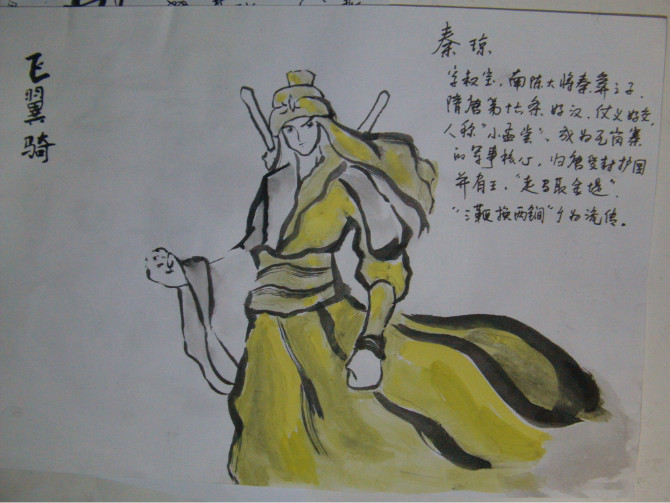 飞翼骑
秦琼
字叔宝，南陈大将秦彝之子，
隋唐第十六条好汉，仗义好交，
人称“小孟尝”，成为瓦岗寨
的军事核心，归唐受封护国
并肩王，“走马取金堤”，
“三鞭换两锏”广为流传。